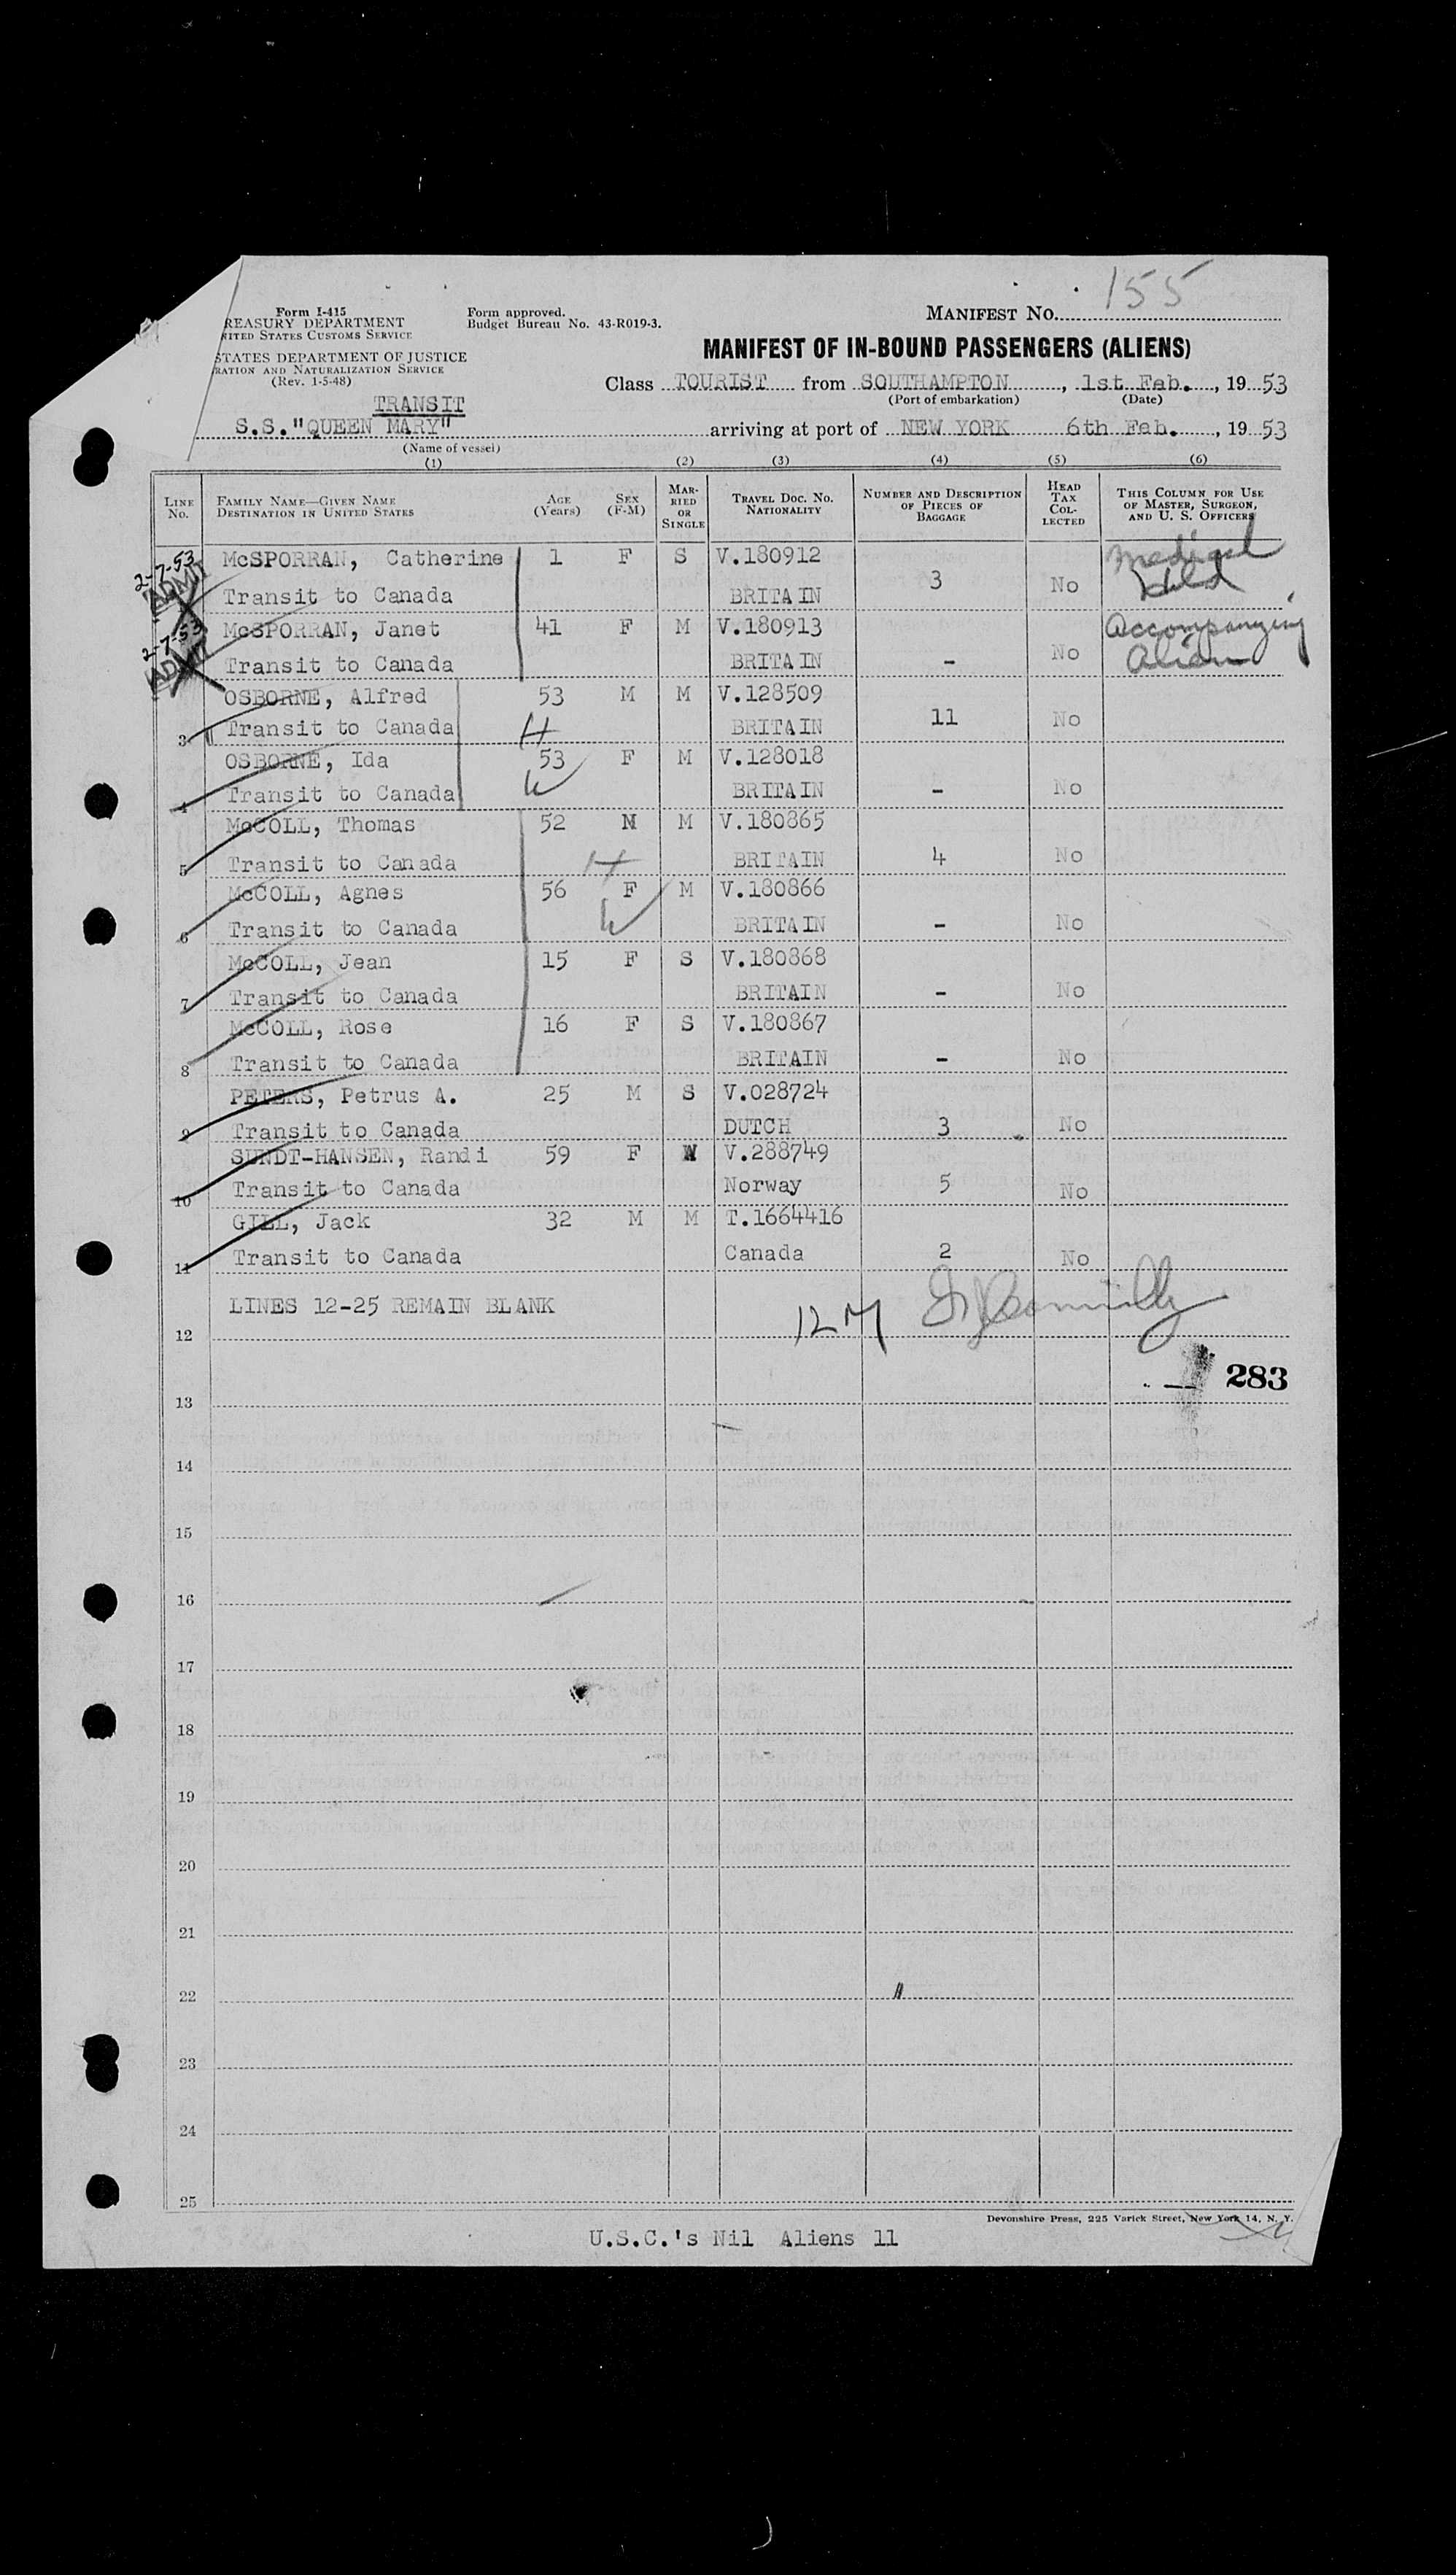 Form I-415
REASURY DEPARTMENT
NITED STATES CUSTOMS SERVICE
STATES DEPARTMENT OF JUSTICE
RATION AND NATURALIZATION SERVICE
(Rev. 1-5-48)
Form approved.
Budget Bureau No. 43-R019-3.
MANIFEST NO. 155
MANIFEST OF IN-BOUND PASSENGERS (ALIENS)
Class TOURIST from SOUTHAMPTON, 1st Feb., 19 53
(Port of embarkation) (Date)
TRANSIT
S.S."QUEEN MARY" arriving at port of NEW YORK 6th Feb., 19 53
(Name of vessel)
(1) (2) (3) (4) (5) (6)
LINE NO. FAMILY NAME—GIVEN NAME DESTINATION IN UNITED STATES AGE (Years) SEX (F-M) MARRIED OR SINGLE TRAVEL DOC. NO. NATIONALITY NUMBER AND DESCRIPTION OF PIECES OF BAGGAGE HEAD TAX COLLECTED THIS COLUMN FOR USE OF MASTER, SURGEON, AND U. S. OFFICERS
2-7-53 McSPORRAN, Catherine 1 F S V.180912 Medical
ADMIT Transit to Canada BRITAIN 3 No Held
2-7-53 McSPORRAN, Janet 41 F M V.180913 Accompanying
ADMIT Transit to Canada BRITAIN - No Alien
OSBORNE, Alfred 53 M M V.128509
3 Transit to Canada H BRITAIN 11 No
OSBORNE, Ida 53 F M V.128018
4 Transit to Canada W BRITAIN - No
McCOLL, Thomas 52 M M V.180865
5 Transit to Canada H BRITAIN 4 No
McCOLL, Agnes 56 F M V.180866
6 Transit to Canada W BRITAIN - No
McCOLL, Jean 15 F S V.180868
7 Transit to Canada BRITAIN - No
McCOLL, Rose 16 F S V.180867
8 Transit to Canada BRITAIN - No
PETERS, Petrus A. 25 M S V.028724
9 Transit to Canada DUTCH 3 No
SUNDT-HANSEN, Randi 59 F W V.288749
10 Transit to Canada Norway 5 No
GILL, Jack 32 M M T.1664416
11 Transit to Canada Canada 2 No
LINES 12-25 REMAIN BLANK
12
283
13
14
15
16
17
18
19
20
21
22
23
24
25
Devonshire Press, 225 Varick Street, New York 14, N. Y.
U.S.C.'s Nil Aliens 11